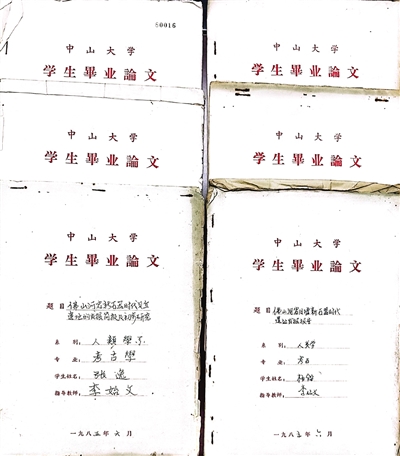 中山大学
学生畢业論文
中山大学
学生畢业論文
中山大学
学生畢业論文
中山大学
学生畢业論文
中山大学
学生畢业論文
题目 佛山河宕新石器时代贝丘
遗址的发掘简报及初步研究
系别： 人類學系
专业： 考古學
学生姓名：
指导教师： 李始文
一九八五年六月
中山大学
学生畢业論文
题目 佛山河宕 新石器时代
遗址发掘
系别： 人类学
专业： 考古
学生姓名：
指导教师： 李始文
一九八五年六月